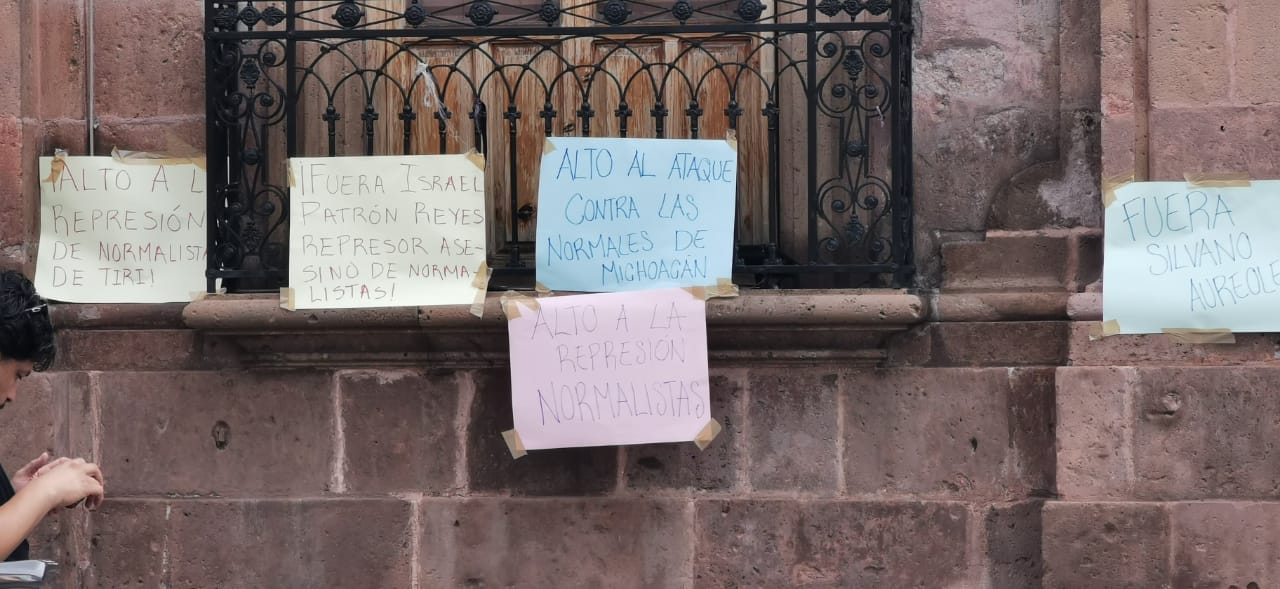 ¡ALTO A L
REPRESIÓN
DE NORMALISTA
DE TIRI!
¡FUERA ISRAEL
PATRÓN REYES
REPRESOR ASE-
SINO DE NORMA-
LISTAS!
ALTO AL ATAQUE
CONTRA LAS
NORMALES DE
MICHOACÁN
ALTO A LA
REPRESIÓN
NORMALISTAS
FUERA
SILVANO
AUREOLE